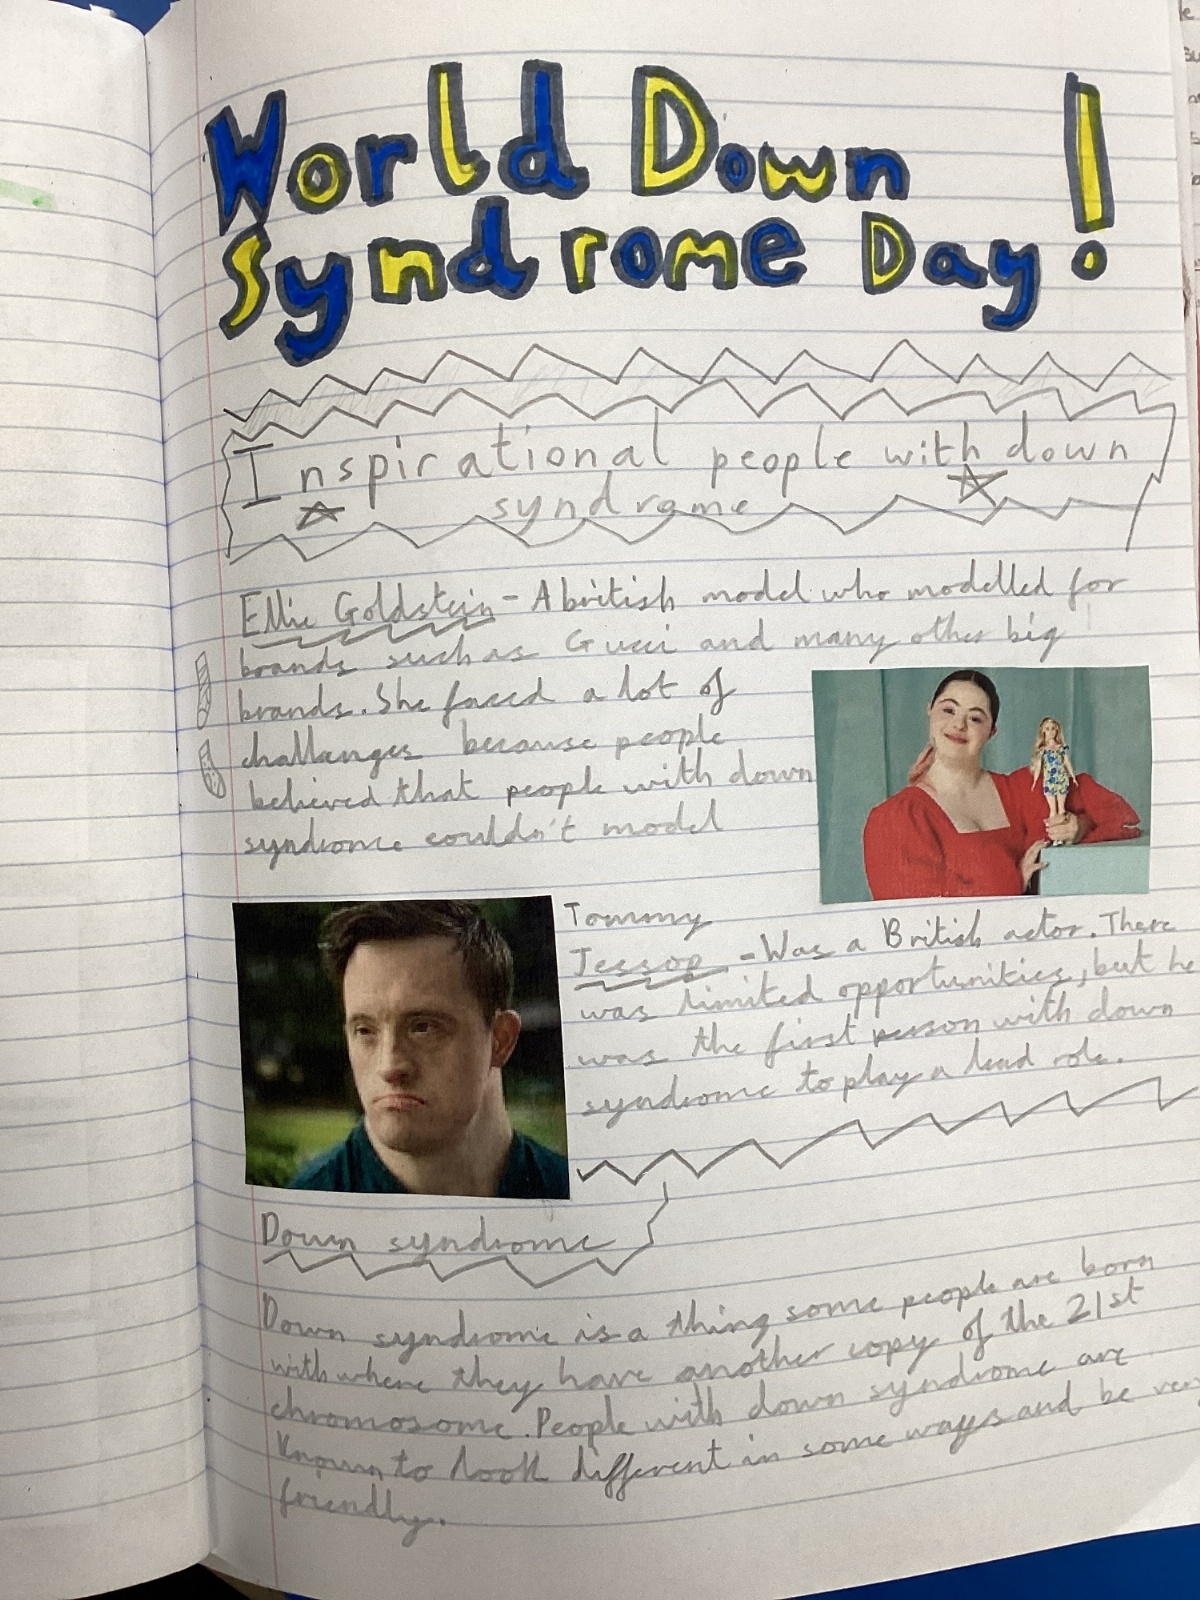 World Down
Syndrome Day!
Inspirational people with down
syndrome
Ellie Goldstein - A british model who modelled for
brands such as Gucci and many other big
brands. She faced a lot of
challenges because people
believed that people with down
syndrome couldn't model
Tommy
Jessop - Was a British actor. There
was limited opportunities, but he
was the first person with down
syndrome to play a lead role.
Down syndrome
Down syndrome is a thing some people are born
with where they have another copy of the 21st
chromosome. People with down syndrome are
known to look different in some ways and be very
friendly.